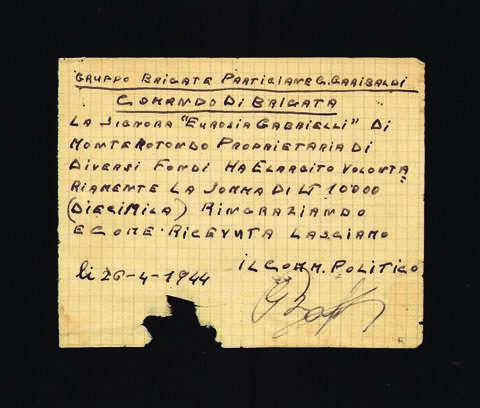 GRUPPO BRIGATE PARTIGIANE G. GARIBALDI
COMANDO DI BRIGATA
LA SIGNORA "EUROLIA GABRIELLI" DI
MONTEROTONDO PROPRIETARIA DI
DIVERSI FONDI HA ELARGITO VOLONTA=
RIAMENTE LA SOMMA DI Lit 10'000
(DIECIMILA) RINGRAZIANDO
E COME RICEVUTA LASCIAMO
li 26-4-1944 IL COMM. POLITICO